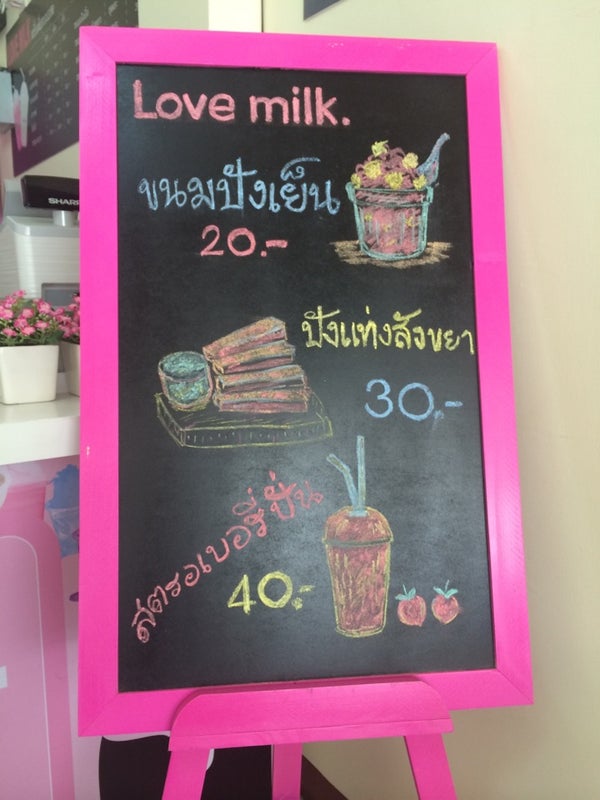 SHARP
Love milk.
ขนมปังเย็น
20.-
ปังแท่งสังขยา
30.-
สตรอเบอรี่ปั่น
40.-